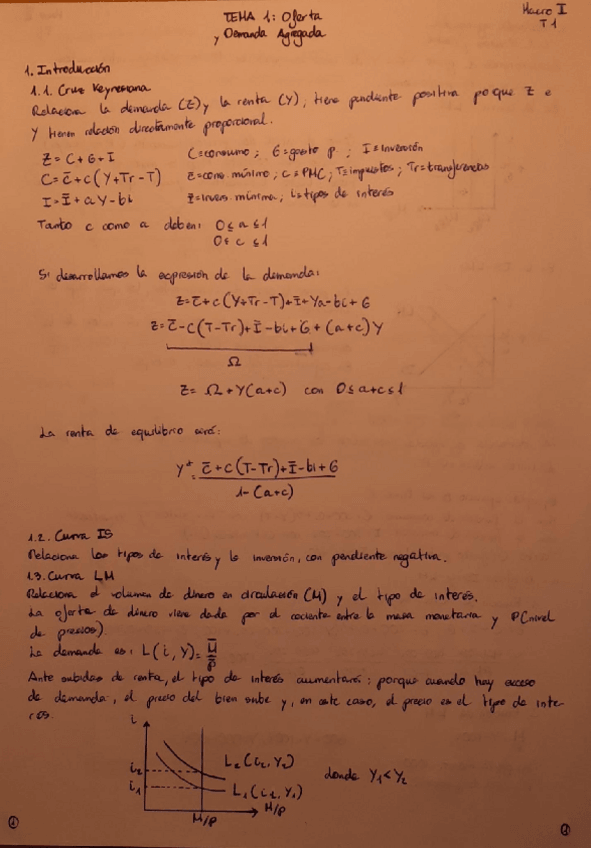 TEMA 1: Oferta
y Demanda Agregada
Macro I
T1
1. Introducción
1.1. Cruz Keynesiana
Relaciona la demanda (Z) y la renta (Y), tiene pendiente positiva porque Z e
Y tienen relación directamente proporcional.
Z = C + G + I    C = consumo ; G = gasto p. ; I = Inversión
C = C̄ + c (Y + Tr - T)    C̄ = cons. mínimo ; c = PMC ; T = impuestos ; Tr = transferencias
I = Ī + aY - bi    Ī = invers. mínima ; i = tipos de interés
Tanto c como a deben: 0 ≤ a ≤ 1
0 ≤ c ≤ 1
Si desarrollamos la expresión de la demanda:
Z = C̄ + c (Y + Tr - T) + Ī + Ya - bi + G
Z = C̄ - c (T - Tr) + Ī - bi + G + (a+c) Y
Ω
Z = Ω + Y(a+c) con 0 ≤ a+c ≤ 1
La renta de equilibrio será:
Y* = C̄ + c (T - Tr) + Ī - bi + G
1 - (a+c)
1.2. Curva IS
Relaciona los tipos de interés y la inversión, con pendiente negativa.
1.3. Curva LM
Relaciona el volumen de dinero en circulación (M) y el tipo de interés.
La oferta de dinero viene dada por el cociente entre la masa monetaria y P(nivel
de precios)
La demanda es: L (i, Y) = M̄/P̄
Ante subidas de renta, el tipo de interés aumentará: porque cuando hay exceso
de demanda, el precio del bien sube y, en este caso, el precio es el tipo de inte-
rés.
i
i₂
i₁
L₂ (i₂, Y₂)
L₁ (i₁, Y₁)
M/P
donde Y₁ < Y₂
1
1